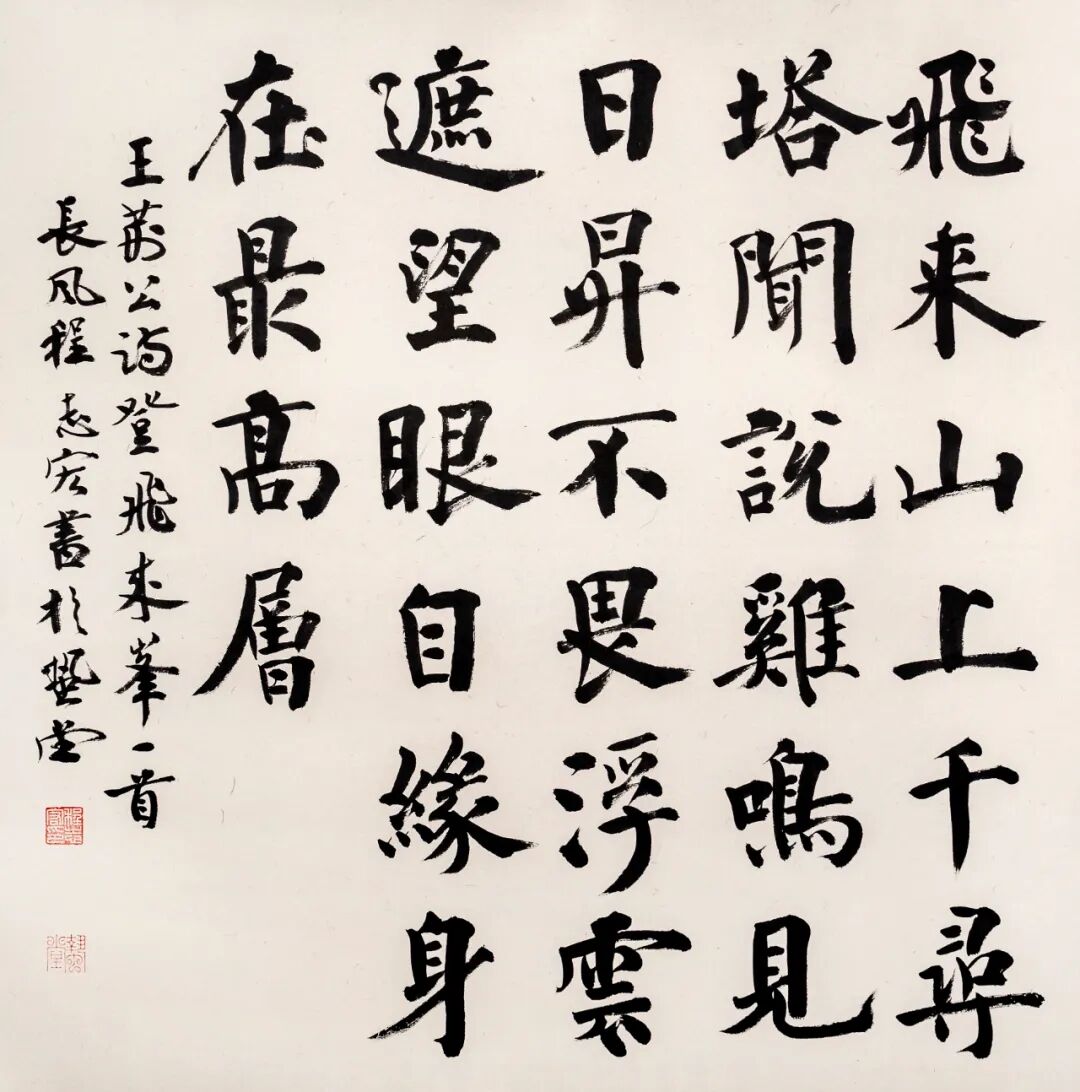 飛来山上千尋
塔聞說雞鳴見
日昇不畏浮雲
遮望眼自緣身
在最高層
王荊公詩登飛来峯一首
長風程志宏書於藝堂